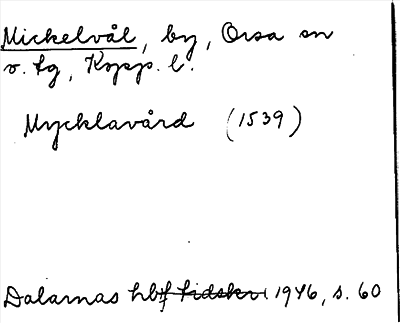 Mickelvål, by, Orsa sn
o. tg, Kopp. l.
Mycklavård (1539)
Dalarnas hbf tidskr 1946, s. 60